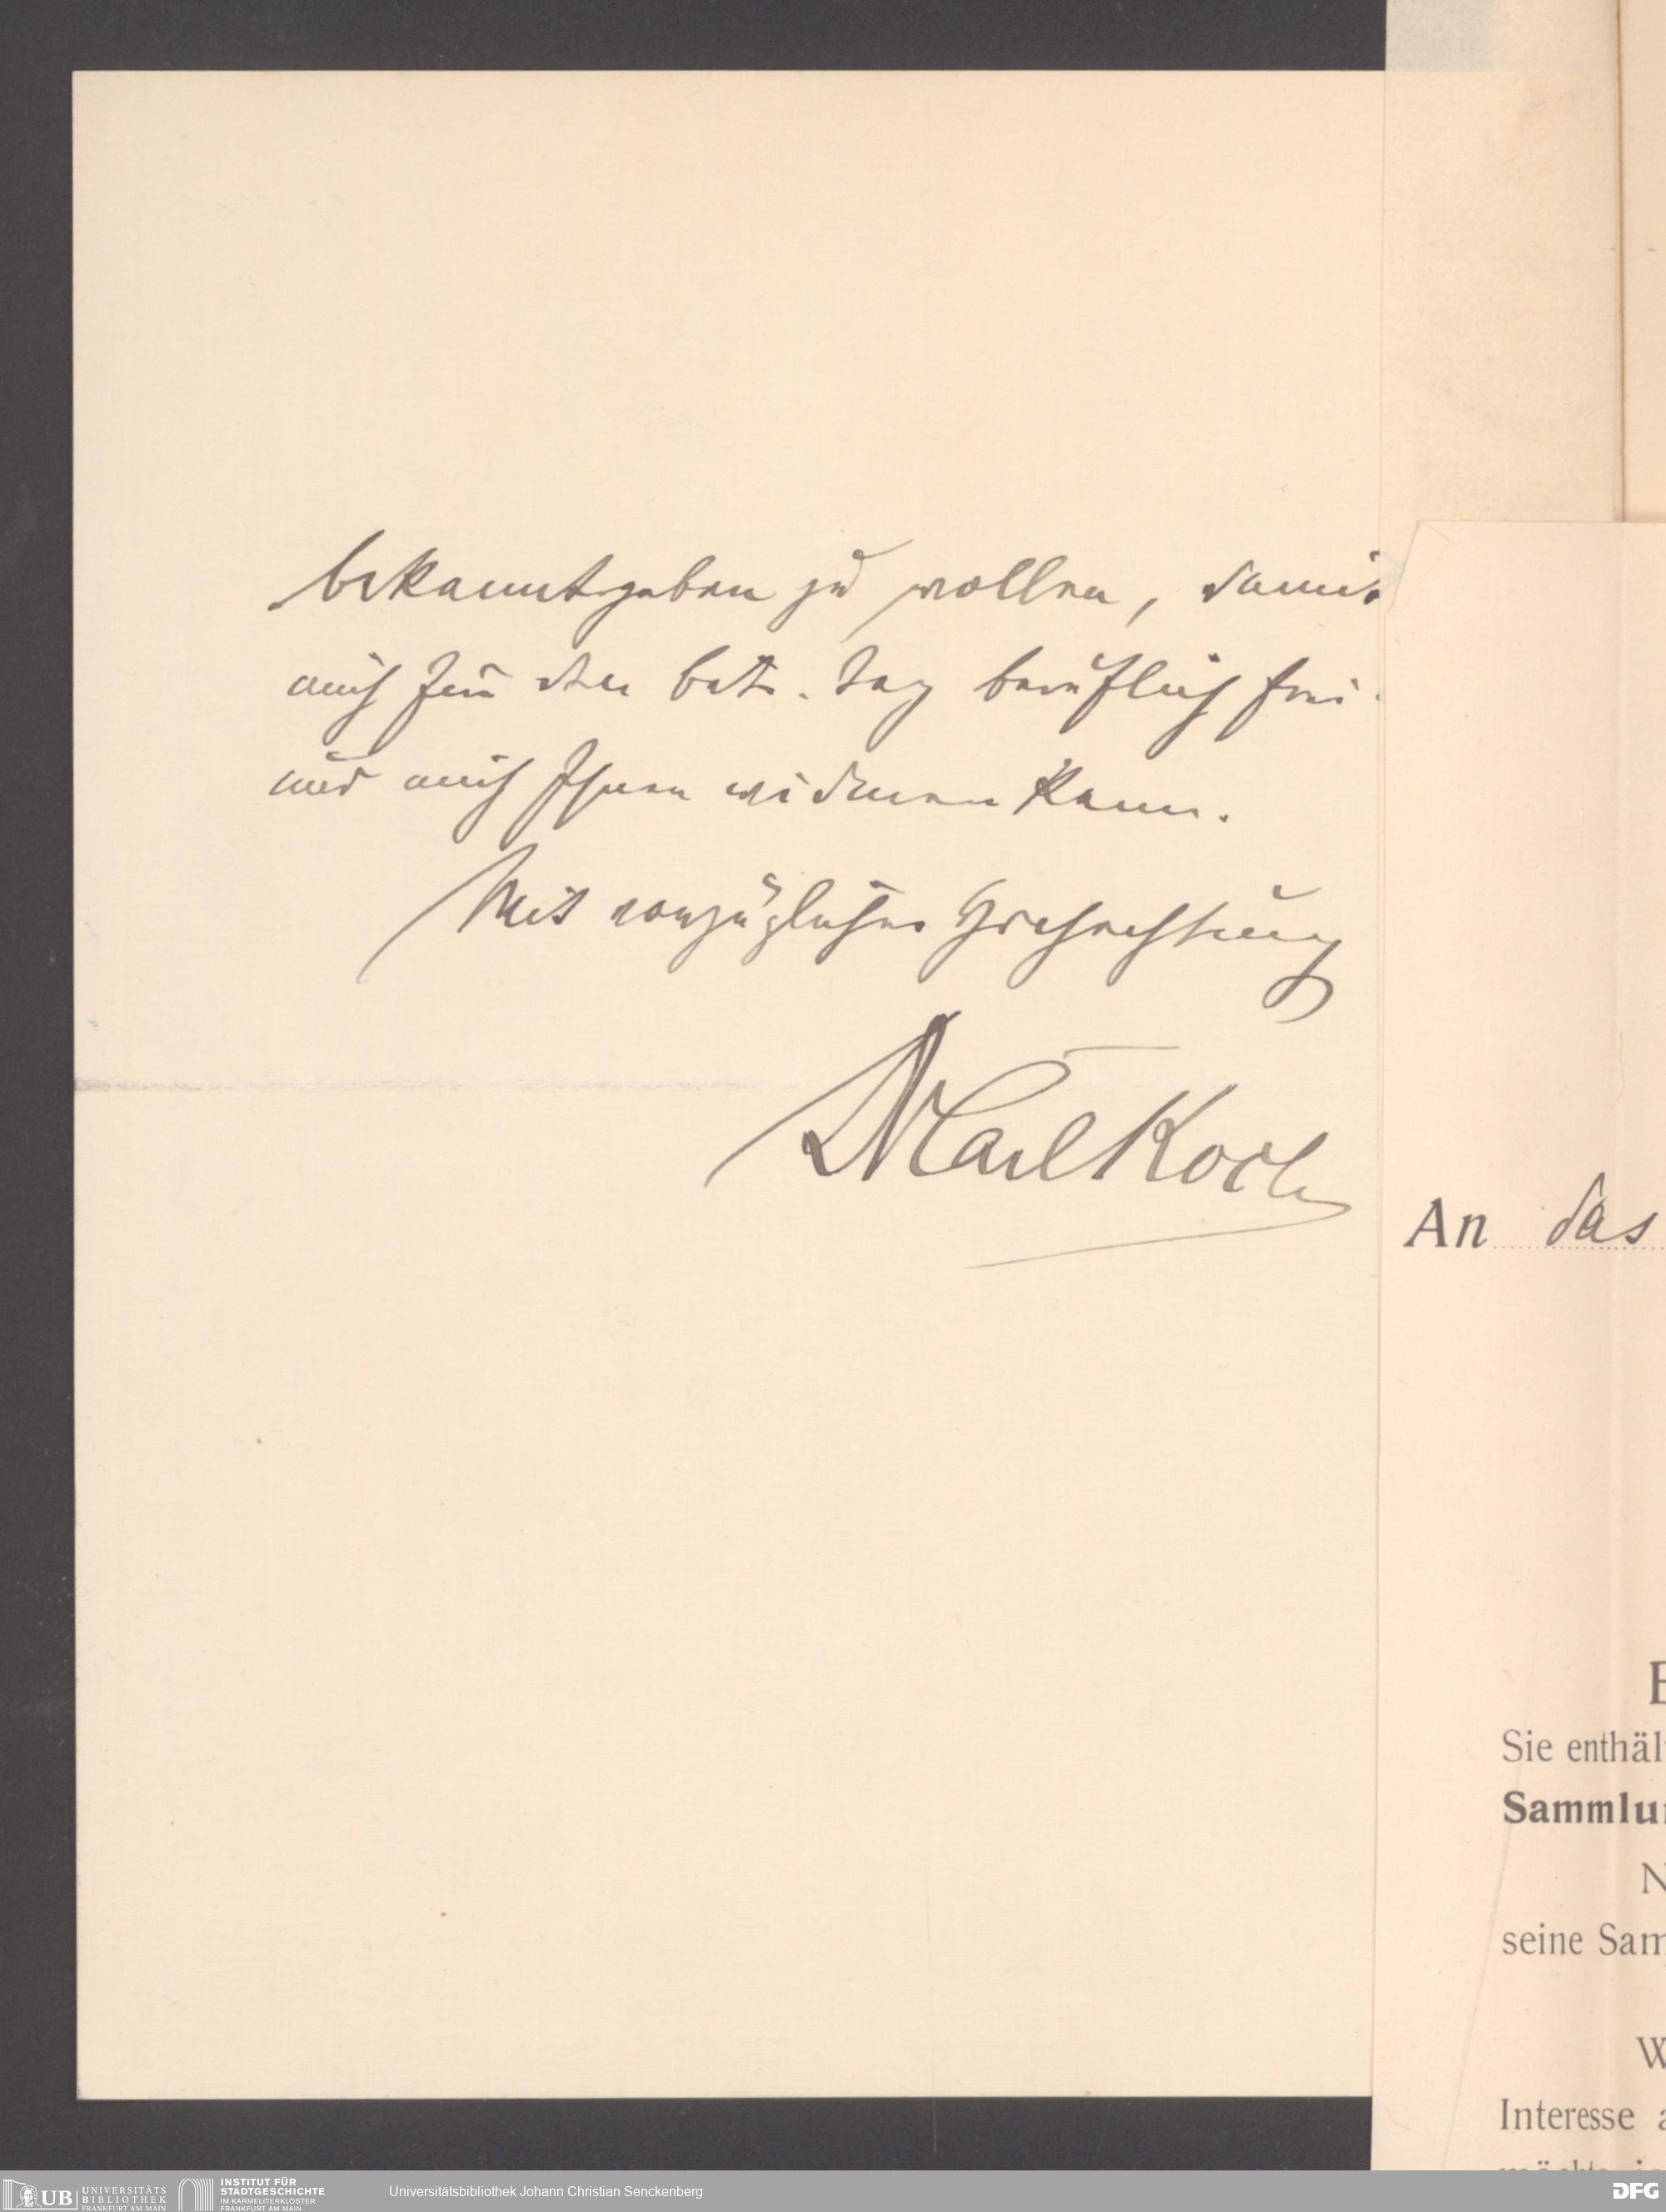 bekanntgeben zu wollen, damit
mich für den betr. Tag beruflich frei
und mich Ihnen widmen kann.
Mit vorzüglicher Hochachtung
Carl Koch
An das
Sie enthäl
Sammlu
seine Sam
W
Interesse a
UB UNIVERSITÄTS
BIBLIOTHEK
FRANKFURT AM MAIN
INSTITUT FÜR
STADTGESCHICHTE
IM KARMELITERKLOSTER
FRANKFURT AM MAIN
Universitätsbibliothek Johann Christian Senckenberg
DFG